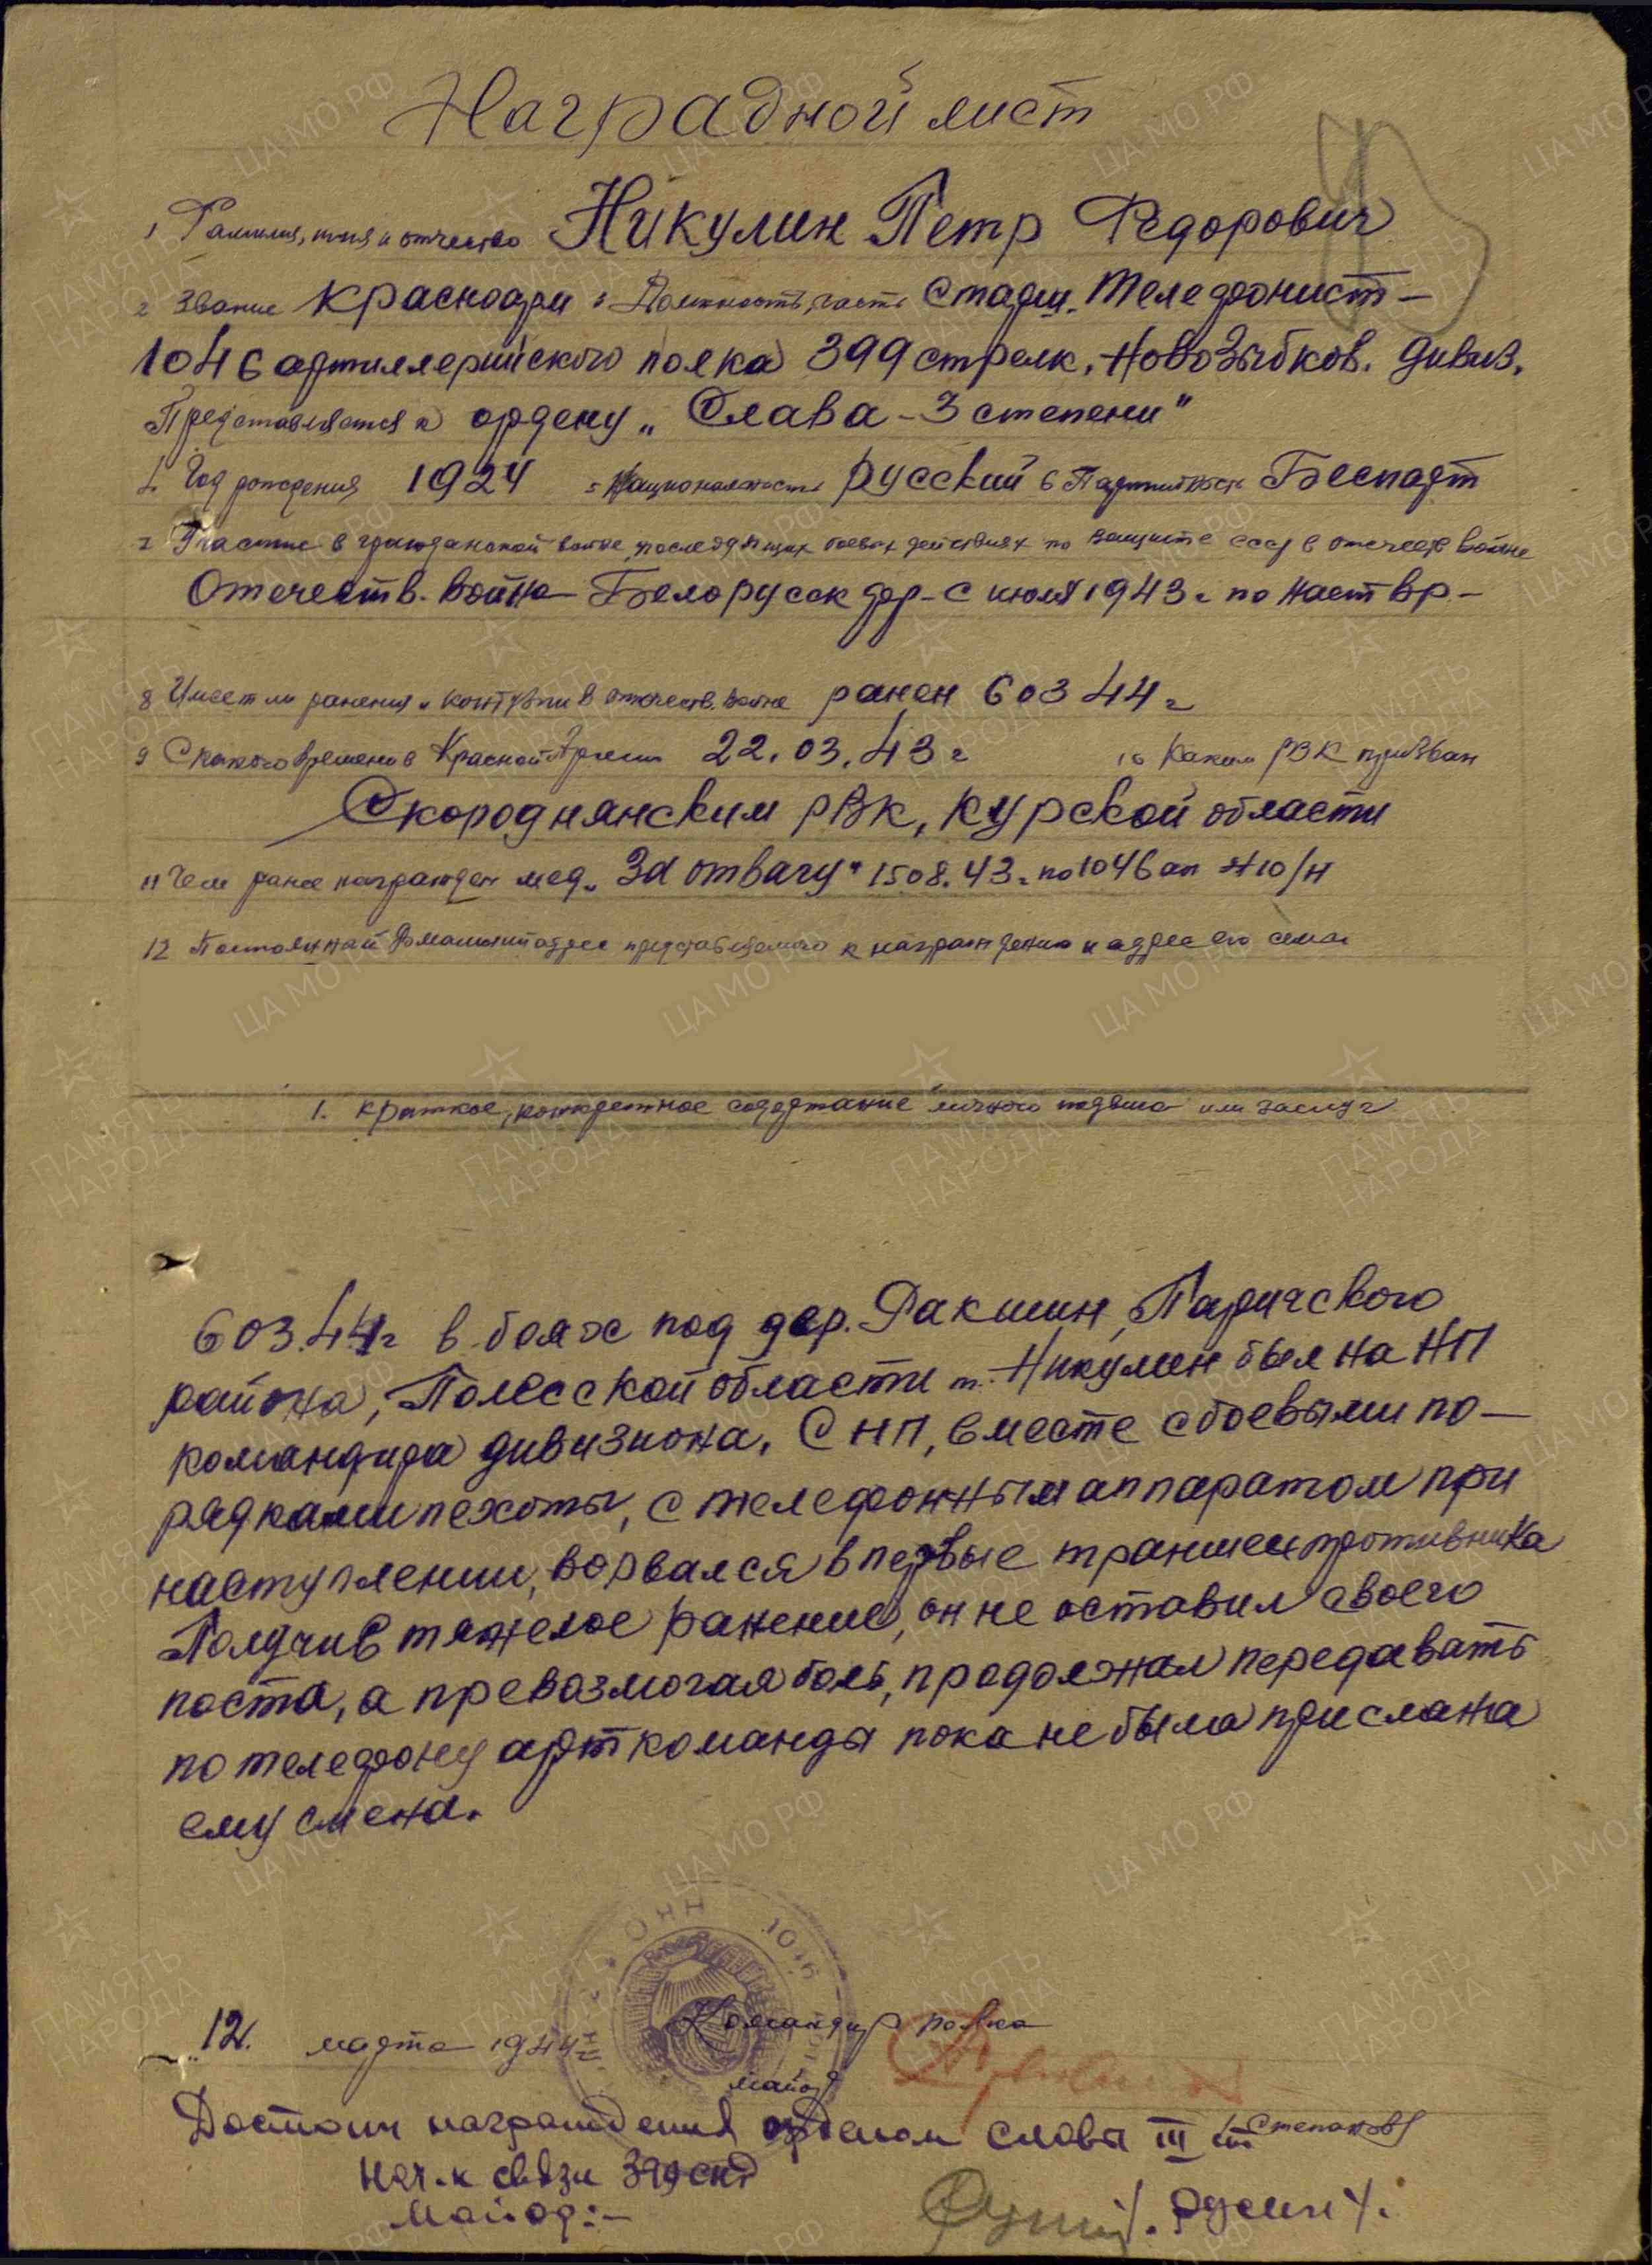 Наградной лист
1 Фамилия, имя и отчество Никулин Петр Федорович
2 Звание Красноарм 3 Должность, часть Старш. Телефонист –
1046 артиллерийского полка 399 стрелк. Новозыбков. дивиз.
Представляется к ордену „Слава – 3 степени"
4. Год рождения 1924 5 Национальность Русский 6 Партийность Беспарт
7 Участие в гражданской войне, последующих боевых действиях по защите СССР в отечеств войне
Отечеств. война Белорусск фр – с июля 1943 г по наст вр –
8 Имеет ли ранения и контузии в отечеств. войне ранен 6 03 44 г
9 С какого времени в Красной Армии 22.03.43 г 10 Каким РВК призван
Скороднянским РВК, Курской области
11 Чем ранее награжден мед. „За отвагу" 15 08.43 г по 1046 ап № 10/н
12 Постоянный домашний адрес представляемого к награждению и адрес его семьи
1. Краткое, конкретное содержание личного подвига или заслуг
6 03.44 г в боях под дер. Ракшин, Паричского
района, Полесской области т. Никулин был на НП
командира дивизиона. С НП, вместе с боевыми по–
рядками пехоты, с телефонным аппаратом при
наступлении, ворвался в первые траншеи противника
Получив тяжелое ранение, он не оставил своего
поста, а превозмогая боль, продолжал передавать
по телефону арт команды пока не была прислана
ему смена.
12. марта 1944 г Командир полка
майор
Степанов
Достоин награждения орденом славы III ст
Нач-к связи 399 сд
Майор:– /. Русин /.
ПАМЯТЬ НАРОДА
ЦА МО РФ